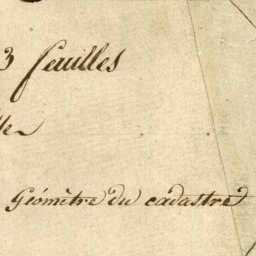 3 feuilles
Géomètre du cadastre